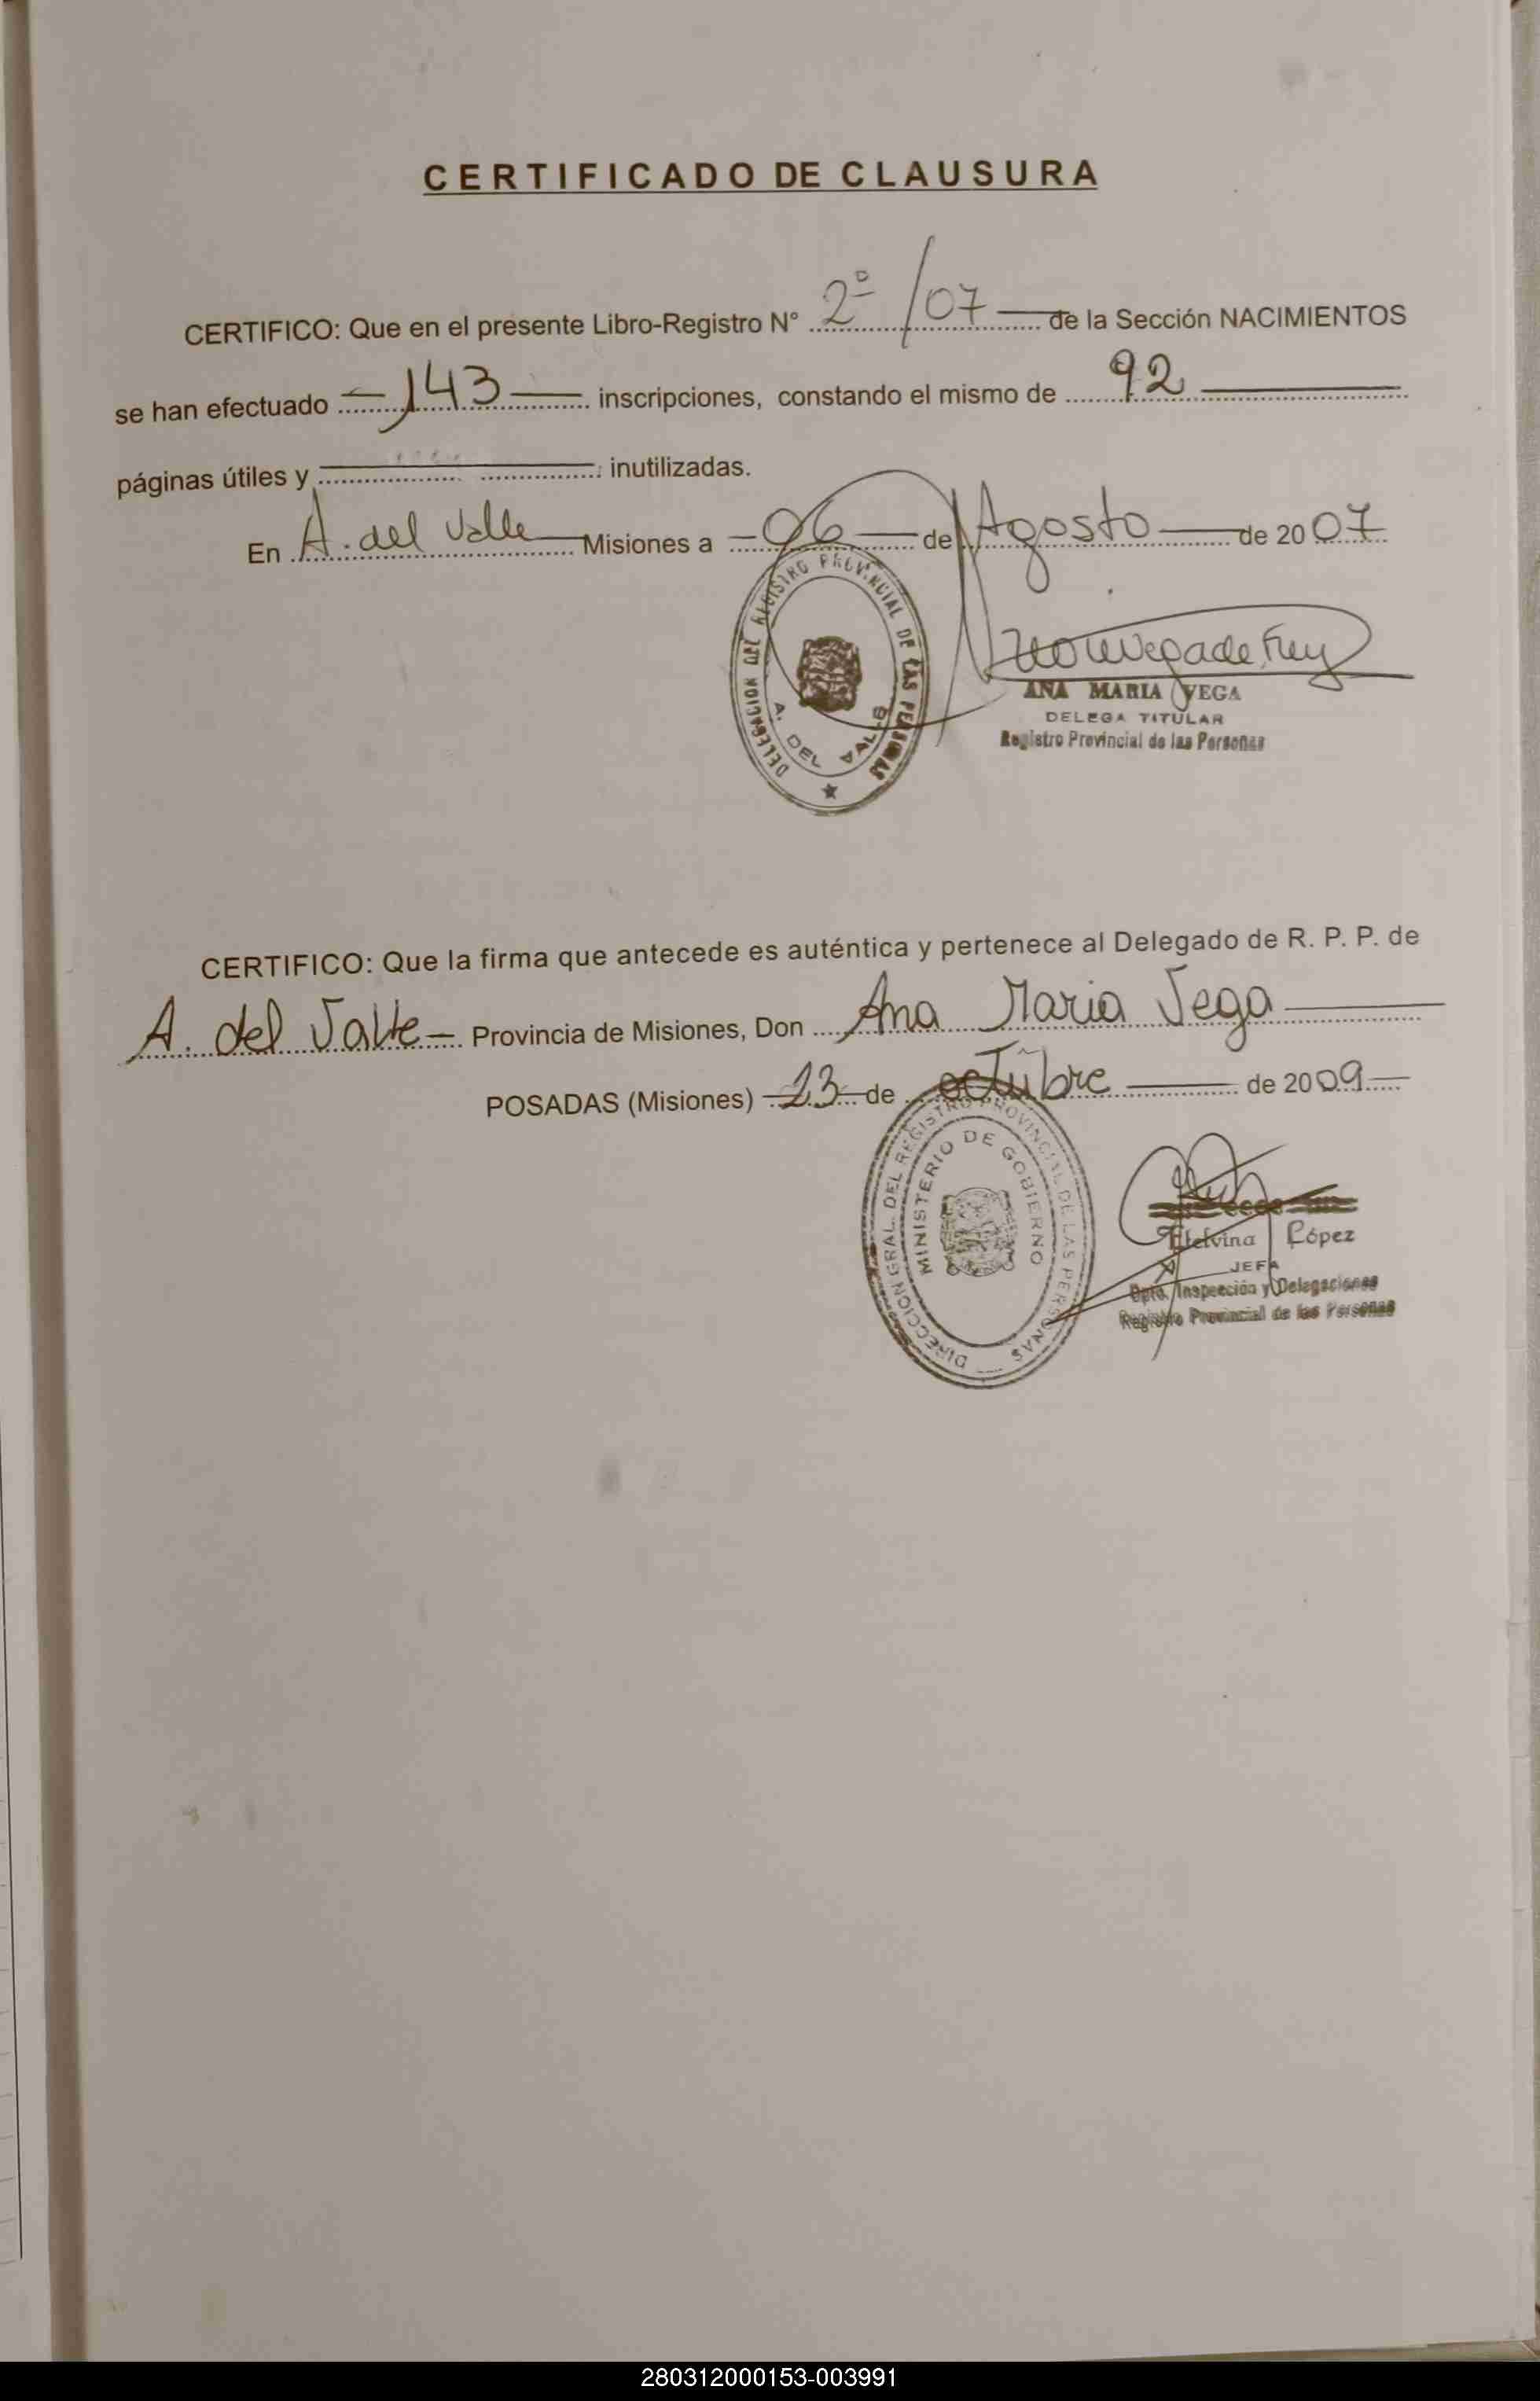 CERTIFICADO DE CLAUSURA
CERTIFICO: Que en el presente Libro-Registro N° 2º/07 de la Sección NACIMIENTOS
se han efectuado - 143 - inscripciones, constando el mismo de 92
páginas útiles y inutilizadas.
En A. del Valle Misiones a - 06 - de Agosto de 2007
DELEGACION DEL REGISTRO PROVINCIAL DE LAS PERSONAS
A. DEL VALLE
ANA MARIA VEGA
DELEGA TITULAR
Registro Provincial de las Personas
CERTIFICO: Que la firma que antecede es auténtica y pertenece al Delegado de R. P. P. de
A. del Valle - Provincia de Misiones, Don Ana Maria Vega
POSADAS (Misiones) - 23 - de octubre de 2009 -
DIRECCION GRAL. DEL REGISTRO PROVINCIAL DE LAS PERSONAS
MINISTERIO DE GOBIERNO
Etelvina López
JEFA
Dpto. Inspección y Delegaciones
Registro Provincial de las Personas
280312000153-003991